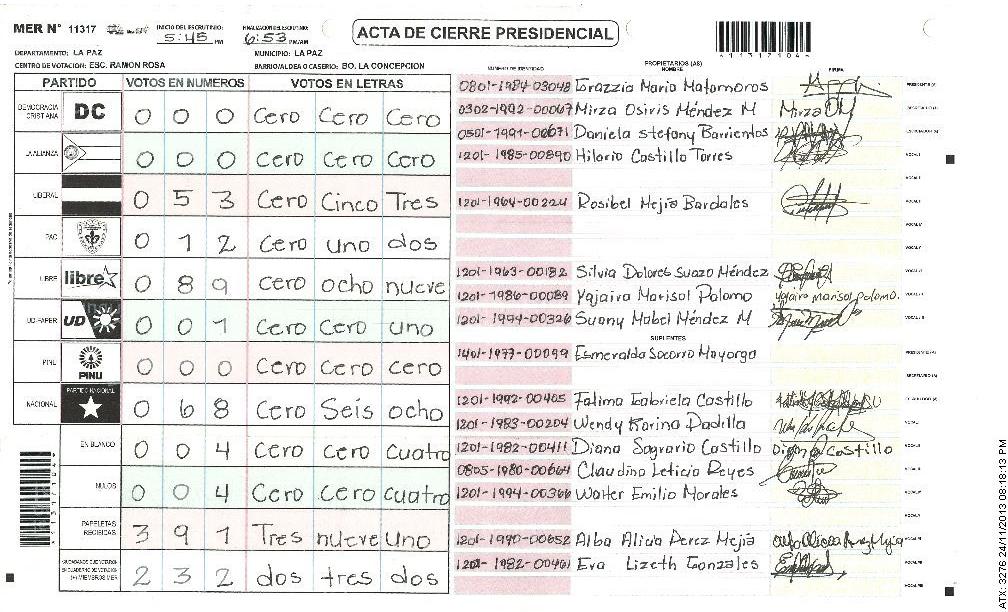 MER N° 11317
INICIO DEL ESCRUTINIO: 5:45 PM
FINALIZACIÓN DEL ESCRUTINIO: 6:53 PM/AM
ACTA DE CIERRE PRESIDENCIAL
11317104
DEPARTAMENTO: LA PAZ
MUNICIPIO: LA PAZ
CENTRO DE VOTACION: ESC. RAMON ROSA
BARRIO/ALDEA O CASERIO: BO. LA CONCEPCION
PARTIDO VOTOS EN NUMEROS VOTOS EN LETRAS
DEMOCRACIA CRISTIANA DC 0 0 0 Cero Cero Cero
LA ALIANZA 0 0 0 Cero Cero Cero
LIBERAL 0 5 3 Cero Cinco Tres
PAC 0 1 2 Cero uno dos
LIBRE libre 0 8 9 cero ocho nueve
UD-FAPER UD 0 0 1 Cero Cero uno
PINU PINU 0 0 0 Cero Cero cero
NACIONAL PARTIDO NACIONAL 0 6 8 Cero Seis ocho
EN BLANCO 0 0 4 Cero Cero cuatro
NULOS 0 0 4 Cero Cero cuatro
PAPELETAS RECIBIDAS 3 9 1 Tres nueve uno
2 3 2 dos tres dos
NUMERO DE IDENTIDAD
PROPIETARIOS (AS)
NOMBRE
FIRMA
0801-1984-03048 Torazzia Maria Matamoros
0302-1992-00067 Mirza Osiris Méndez M Mirza OM
0501-1991-00671 Daniela Stefany Barrientos
1201-1985-00890 Hilario Castillo Torres
1201-1964-00224 Rosibel Mejia Bardales
1201-1963-00182 Silvia Dolores Suazo Méndez
1201-1986-00089 Yajaira Marisol Palomo yajaira marisol palomo.
1201-1994-00326 Suany Mabel Méndez M
SUPLENTES
1401-1977-00099 Esmeralda Socorro Mayorga
1201-1992-00405 Fatima Gabriela Castillo
1201-1983-00204 Wendy Karina Padilla
1201-1982-00411 Diana Sagrario Castillo Diana Castillo
0805-1980-00664 Claudina Leticia Reyes
1201-1994-00366 Walter Emilio Morales
1201-1990-00652 Alba Alicia Perez Mejia
1201-1982-00461 Eva Lizeth Gonzales
ATX: 3276 24/11/2013 08:18:13 PM